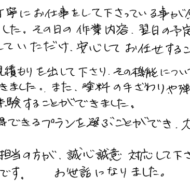 丁寧にお仕事をして下さっている事が伝
した。その日の作業内容、翌日の予定
していただけ、安心してお任せするこ
見積もりを出して下さり、その機能につい
きました。また、塗料のキざわりや
体験することができました。
得できるプランを選ぶことができ、大
担当の方が、誠心誠意 対応して下さ
です。 お世話になりました。